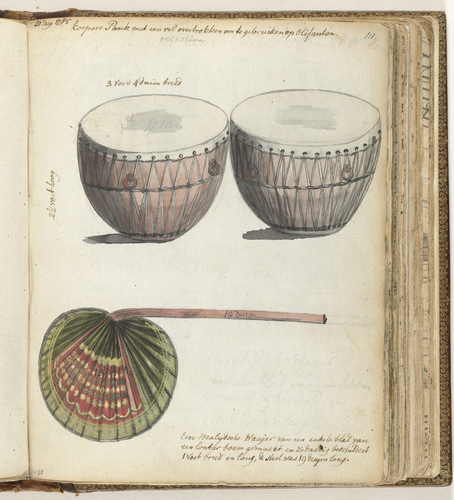 Kopere Pauk met een vel overtrokken om te gebruiken op Olifanten
111.
3 voet 4 duim breed
2½ voet hoog
19 duim
Een Malijdsche Waaijer van een enkele blad van
een lontar boom gemaakt en zodaanig beschildert
1 Voet breed en lang, de Steel was 19 duijm lang.